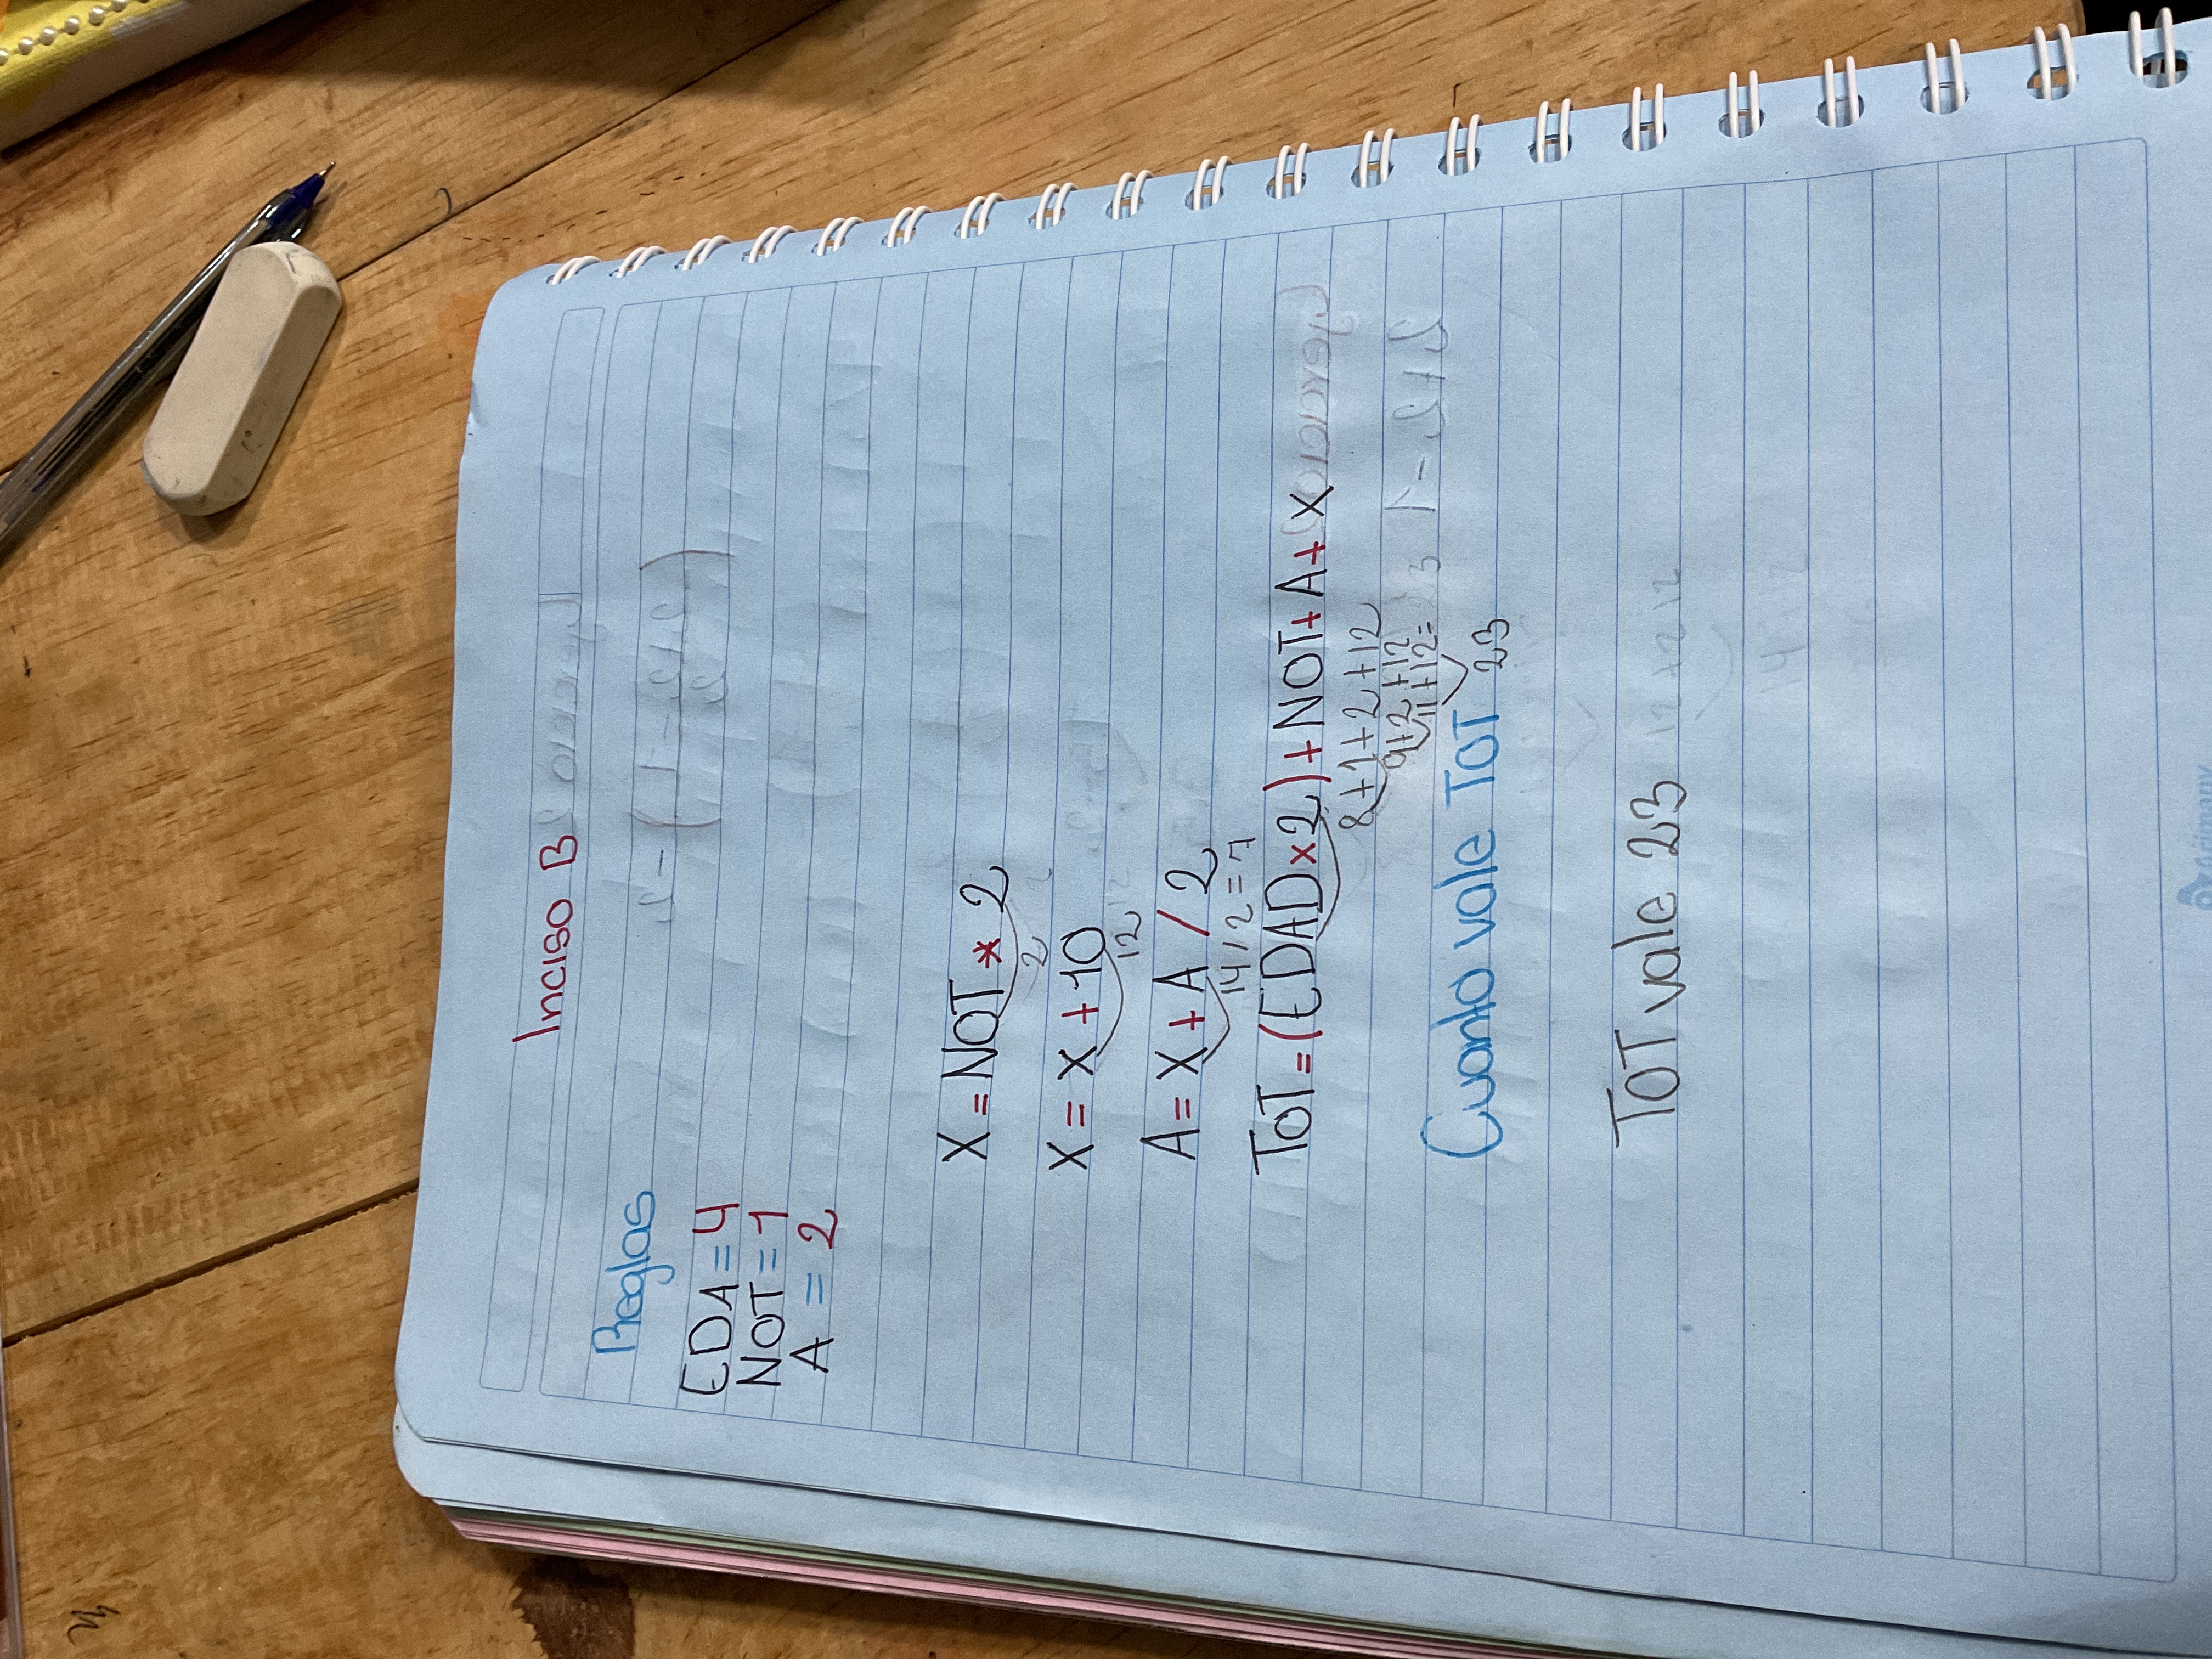 Inciso B
Reglas
EDA = 4
NOT = 1
A = 2
X = NOT * 2
2
X = X + 10
12
A = X + A / 2
14 / 2 = 7
TOT = (EDAD x 2) + NOT + A + X
8 + 1 + 2 + 12
9 + 2 + 12
11 + 12 =
Cuanto vale TOT 23
TOT vale 23